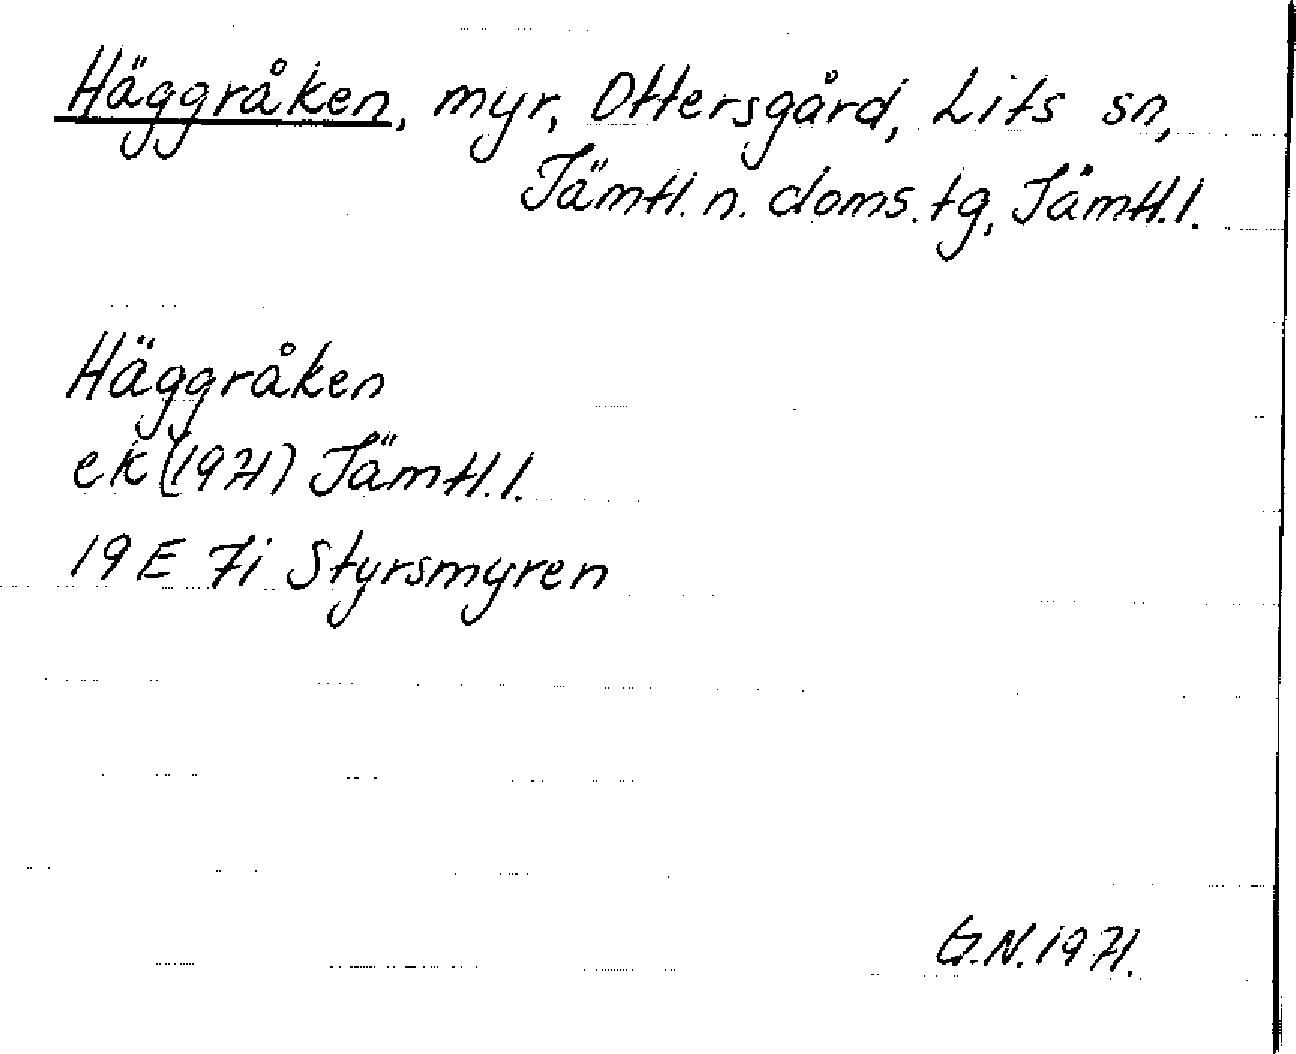 Häggråken, myr, Ottersgård, Lits sn,
Jämtl. n. doms. tg, Jämtl. l.
Häggråken
ek (1971) Jämtl. l.
19 E 7i Styrsmyren
G.N. 1971.